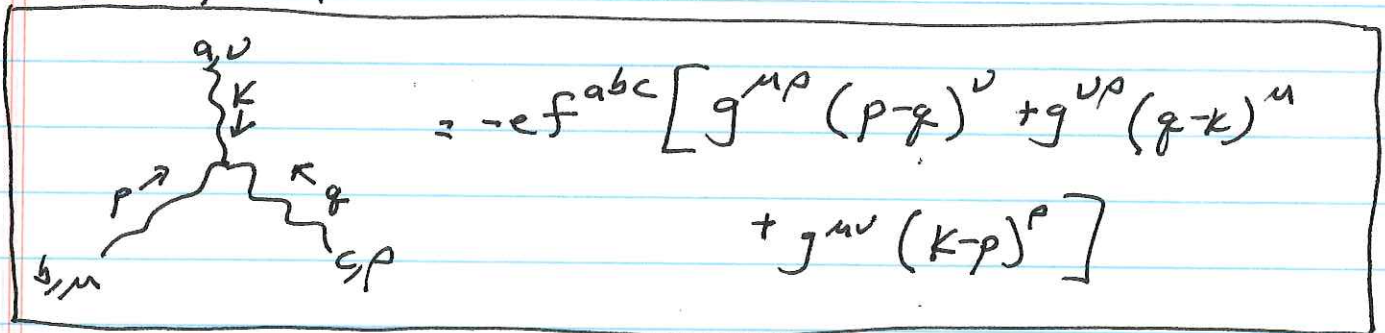 a,ν
k
p
q
b,μ
c,ρ
= -e f^{abc} [ g^{μρ} (p-q)^ν + g^{νρ} (q-k)^μ
+ g^{μν} (k-p)^ρ ]